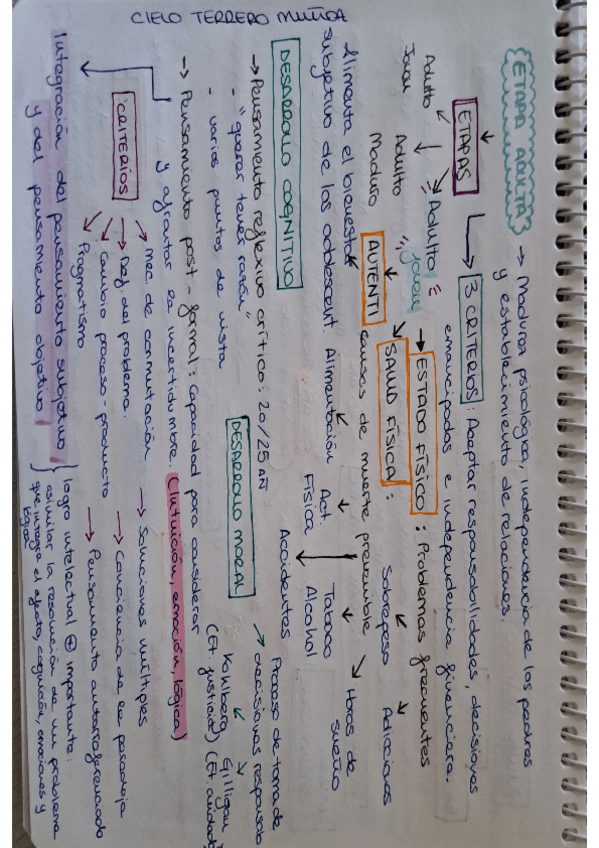 CIELO TERRERO MUÑOA
ETAPA ADULTA
→ Madurez psicológica, independencia de los padres
y establecimiento de relaciones.
ETAPAS
Adulto
Joven
Adulto
Maduro
Adulto
3 CRITERIOS: Aceptar responsabilidades, decisiones
emancipadas e independencia financiera.
Adulto joven
→ ESTADO FÍSICO: Problemas frecuentes
Sobrepeso
Adicciones
SALUD FÍSICA:
Causas de muerte prevenible
Alimentación
Act.
Física
Tabaco
Alcohol
Horas de
Sueño
Accidentes
AUTENTI
Alimenta el bienestar
subjetivo de los adolescent.
DESARROLLO COGNITIVO
→ Pensamiento reflexivo crítico: 20/25 AÑ
- "querer tener razón"
- varios puntos de vista
→ Pensamiento post-formal: Capacidad para considerar
y afrontar la incertidumbre. (Intuición, emoción, lógica)
DESARROLLO MORAL
Proceso de toma de
decisiones responsab
Kohlberg
(Et. justicia)
Gilligan
(Et. cuidado)
CRITERIOS
→ Mec de conmutación → Soluciones múltiples
→ Def. del problema. → Conciencia de la paradoja
→ Cambio proceso-producto → Pensamiento autorreferenciado
Pragmatismo
Integración del pensamiento subjetivo
y del pensamiento objetivo
logro intelectual ⊕ importante:
asimilar la resolución de un problema
que integra el afecto, cognición, emociones y
lógica